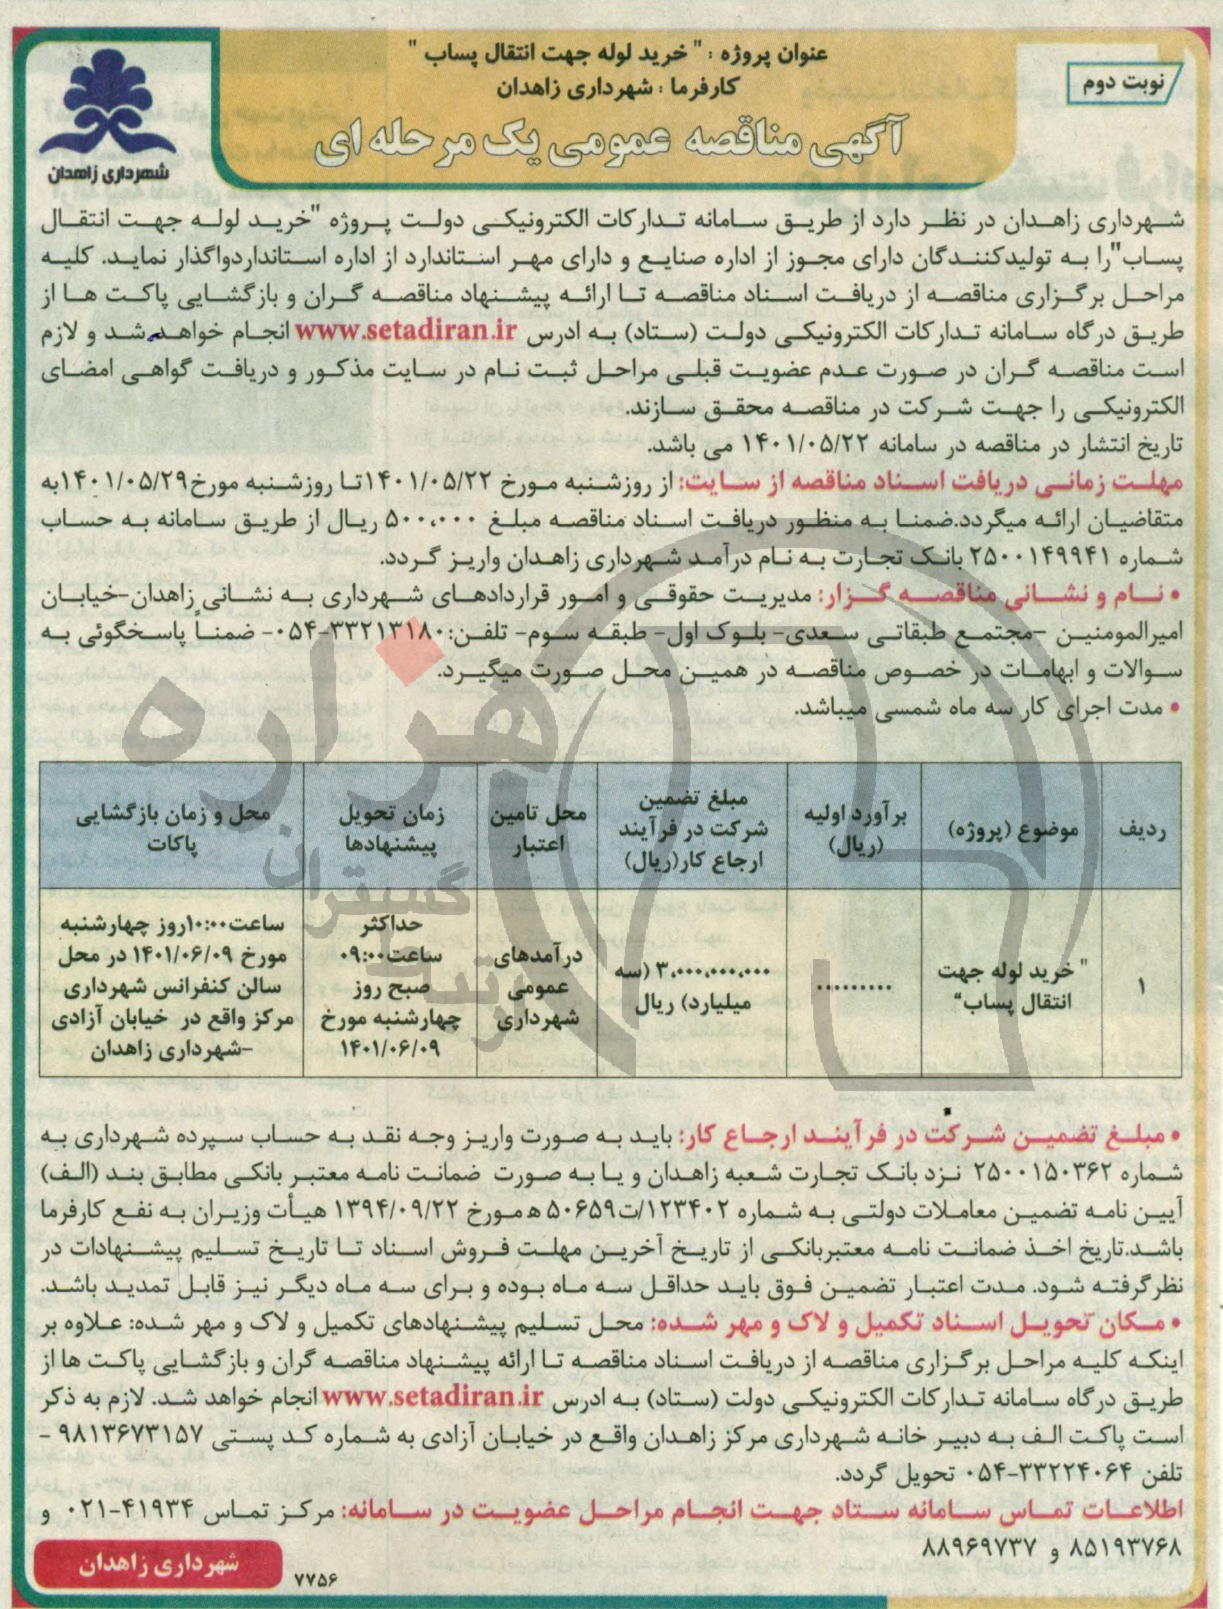 عنوان پروژه : " خرید لوله جهت انتقال پساب "
کارفرما : شهرداری زاهدان
نوبت دوم
آگهی مناقصه عمومی یک مرحله ای
شهرداری زاهدان
شهرداری زاهدان در نظر دارد از طریق سامانه تدارکات الکترونیکی دولت پروژه "خرید لوله جهت انتقال
پساب"را به تولیدکنندگان دارای مجوز از اداره صنایع و دارای مهر استاندارد از اداره استانداردواگذار نماید. کلیه
مراحل برگزاری مناقصه از دریافت اسناد مناقصه تا ارائه پیشنهاد مناقصه گران و بازگشایی پاکت ها از
طریق درگاه سامانه تدارکات الکترونیکی دولت (ستاد) به ادرس www.setadiran.ir انجام خواهد شد و لازم
است مناقصه گران در صورت عدم عضویت قبلی مراحل ثبت نام در سایت مذکور و دریافت گواهی امضای
الکترونیکی را جهت شرکت در مناقصه محقق سازند.
تاریخ انتشار در مناقصه در سامانه ۱۴۰۱/۰۵/۲۲ می باشد.
مهلت زمانی دریافت اسناد مناقصه از سایت: از روزشنبه مورخ ۱۴۰۱/۰۵/۲۲تا روزشنبه مورخ۱۴۰۱/۰۵/۲۹به
متقاضیان ارائه میگردد.ضمنا به منظور دریافت اسناد مناقصه مبلغ ۵۰۰،۰۰۰ ریال از طریق سامانه به حساب
شماره ۲۵۰۰۱۴۹۹۴۱ بانک تجارت به نام درآمد شهرداری زاهدان واریز گردد.
• نام و نشانی مناقصه گزار: مدیریت حقوقی و امور قراردادهای شهرداری به نشانی زاهدان-خیابان
امیرالمومنین -مجتمع طبقاتی سعدی- بلوک اول- طبقه سوم- تلفن:۳۳۲۱۳۱۸۰-۰۵۴- ضمناً پاسخگوئی به
سوالات و ابهامات در خصوص مناقصه در همین محل صورت میگیرد.
• مدت اجرای کار سه ماه شمسی میباشد.
ردیف
موضوع (پروژه)
برآورد اولیه
(ریال)
مبلغ تضمین
شرکت در فرآیند
ارجاع کار(ریال)
محل تامین
اعتبار
زمان تحویل
پیشنهادها
محل و زمان بازگشایی
پاکات
۱
" خرید لوله جهت
انتقال پساب"
.........
۳،۰۰۰،۰۰۰،۰۰۰ (سه
میلیارد) ریال
درآمدهای
عمومی
شهرداری
حداکثر
ساعت۰۹:۰۰
صبح روز
چهارشنبه مورخ
۱۴۰۱/۰۶/۰۹
ساعت۱۰:۰۰روز چهارشنبه
مورخ ۱۴۰۱/۰۶/۰۹ در محل
سالن کنفرانس شهرداری
مرکز واقع در خیابان آزادی
-شهرداری زاهدان
• مبلغ تضمین شرکت در فرآیند ارجاع کار: باید به صورت واریز وجه نقد به حساب سپرده شهرداری به
شماره ۲۵۰۰۱۵۰۳۶۲ نزد بانک تجارت شعبه زاهدان و یا به صورت ضمانت نامه معتبر بانکی مطابق بند (الف)
آیین نامه تضمین معاملات دولتی به شماره ۱۲۳۴۰۲/ت۵۰۶۵۹ ه مورخ ۱۳۹۴/۰۹/۲۲ هیأت وزیران به نفع کارفرما
باشد.تاریخ اخذ ضمانت نامه معتبربانکی از تاریخ آخرین مهلت فروش اسناد تا تاریخ تسلیم پیشنهادات در
نظرگرفته شود. مدت اعتبار تضمین فوق باید حداقل سه ماه بوده و برای سه ماه دیگر نیز قابل تمدید باشد.
• مکان تحویل اسناد تکمیل و لاک و مهر شده: محل تسلیم پیشنهادهای تکمیل و لاک و مهر شده: علاوه بر
اینکه کلیه مراحل برگزاری مناقصه از دریافت اسناد مناقصه تا ارائه پیشنهاد مناقصه گران و بازگشایی پاکت ها از
طریق درگاه سامانه تدارکات الکترونیکی دولت (ستاد) به ادرس www.setadiran.ir انجام خواهد شد. لازم به ذکر
است پاکت الف به دبیر خانه شهرداری مرکز زاهدان واقع در خیابان آزادی به شماره کد پستی ۹۸۱۳۶۷۳۱۵۷ -
تلفن ۳۳۲۲۴۰۶۴-۰۵۴ تحویل گردد.
اطلاعات تماس سامانه ستاد جهت انجام مراحل عضویت در سامانه: مرکز تماس ۴۱۹۳۴-۰۲۱ و
۸۵۱۹۳۷۶۸ و ۸۸۹۶۹۷۳۷
۷۷۵۶
شهرداری زاهدان
هزاره
گستران